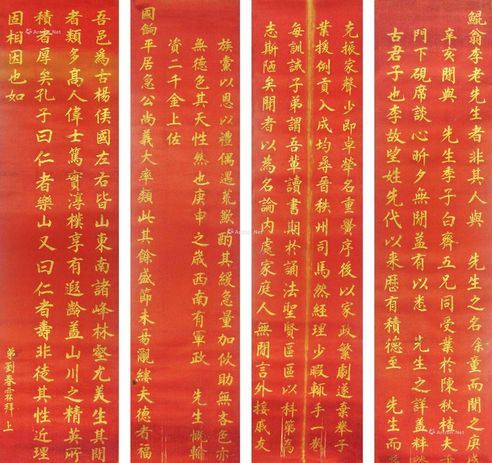 鯤翁李老先生者非其人與　先生之名余童而聞之庚戌
辛亥間與　先生季子白齊五兄同受業於陳秋楂夫子
門下硯席談心昕夕無間益有以悉　先生之詳蓋粹然
古君子也李故望姓先代以來歷有積德至　先生而
克振家聲少即卓犖名重黌序後以家政繁劇遂棄舉子
業援例貢入成均尋晉秩州司馬然經理少暇輒手一卷
每訓誡子弟謂吾輩讀書期於誦法聖賢區區以科第為
志斯陋矣聞者以為名論內處家庭人無閒言外接戚友
族黨以恩以禮偶遇荒歉酌其緩急量加伙助無吝色亦
無德色其天性然也庚申之歲西南有軍政　先生慨輸
資二千金上佐
國餉平居急公尚義大率類此其餘盛節未易覼縷夫德者福
吾邑為古楊侯國左右皆山東南諸峰林壑尤美生其間
者類多高人偉士篤實淳樸享有遐齡蓋山川之精英所
積者厚矣孔子曰仁者樂山又曰仁者壽非徒其性近理
固相因也如
弟劉春霖拜上